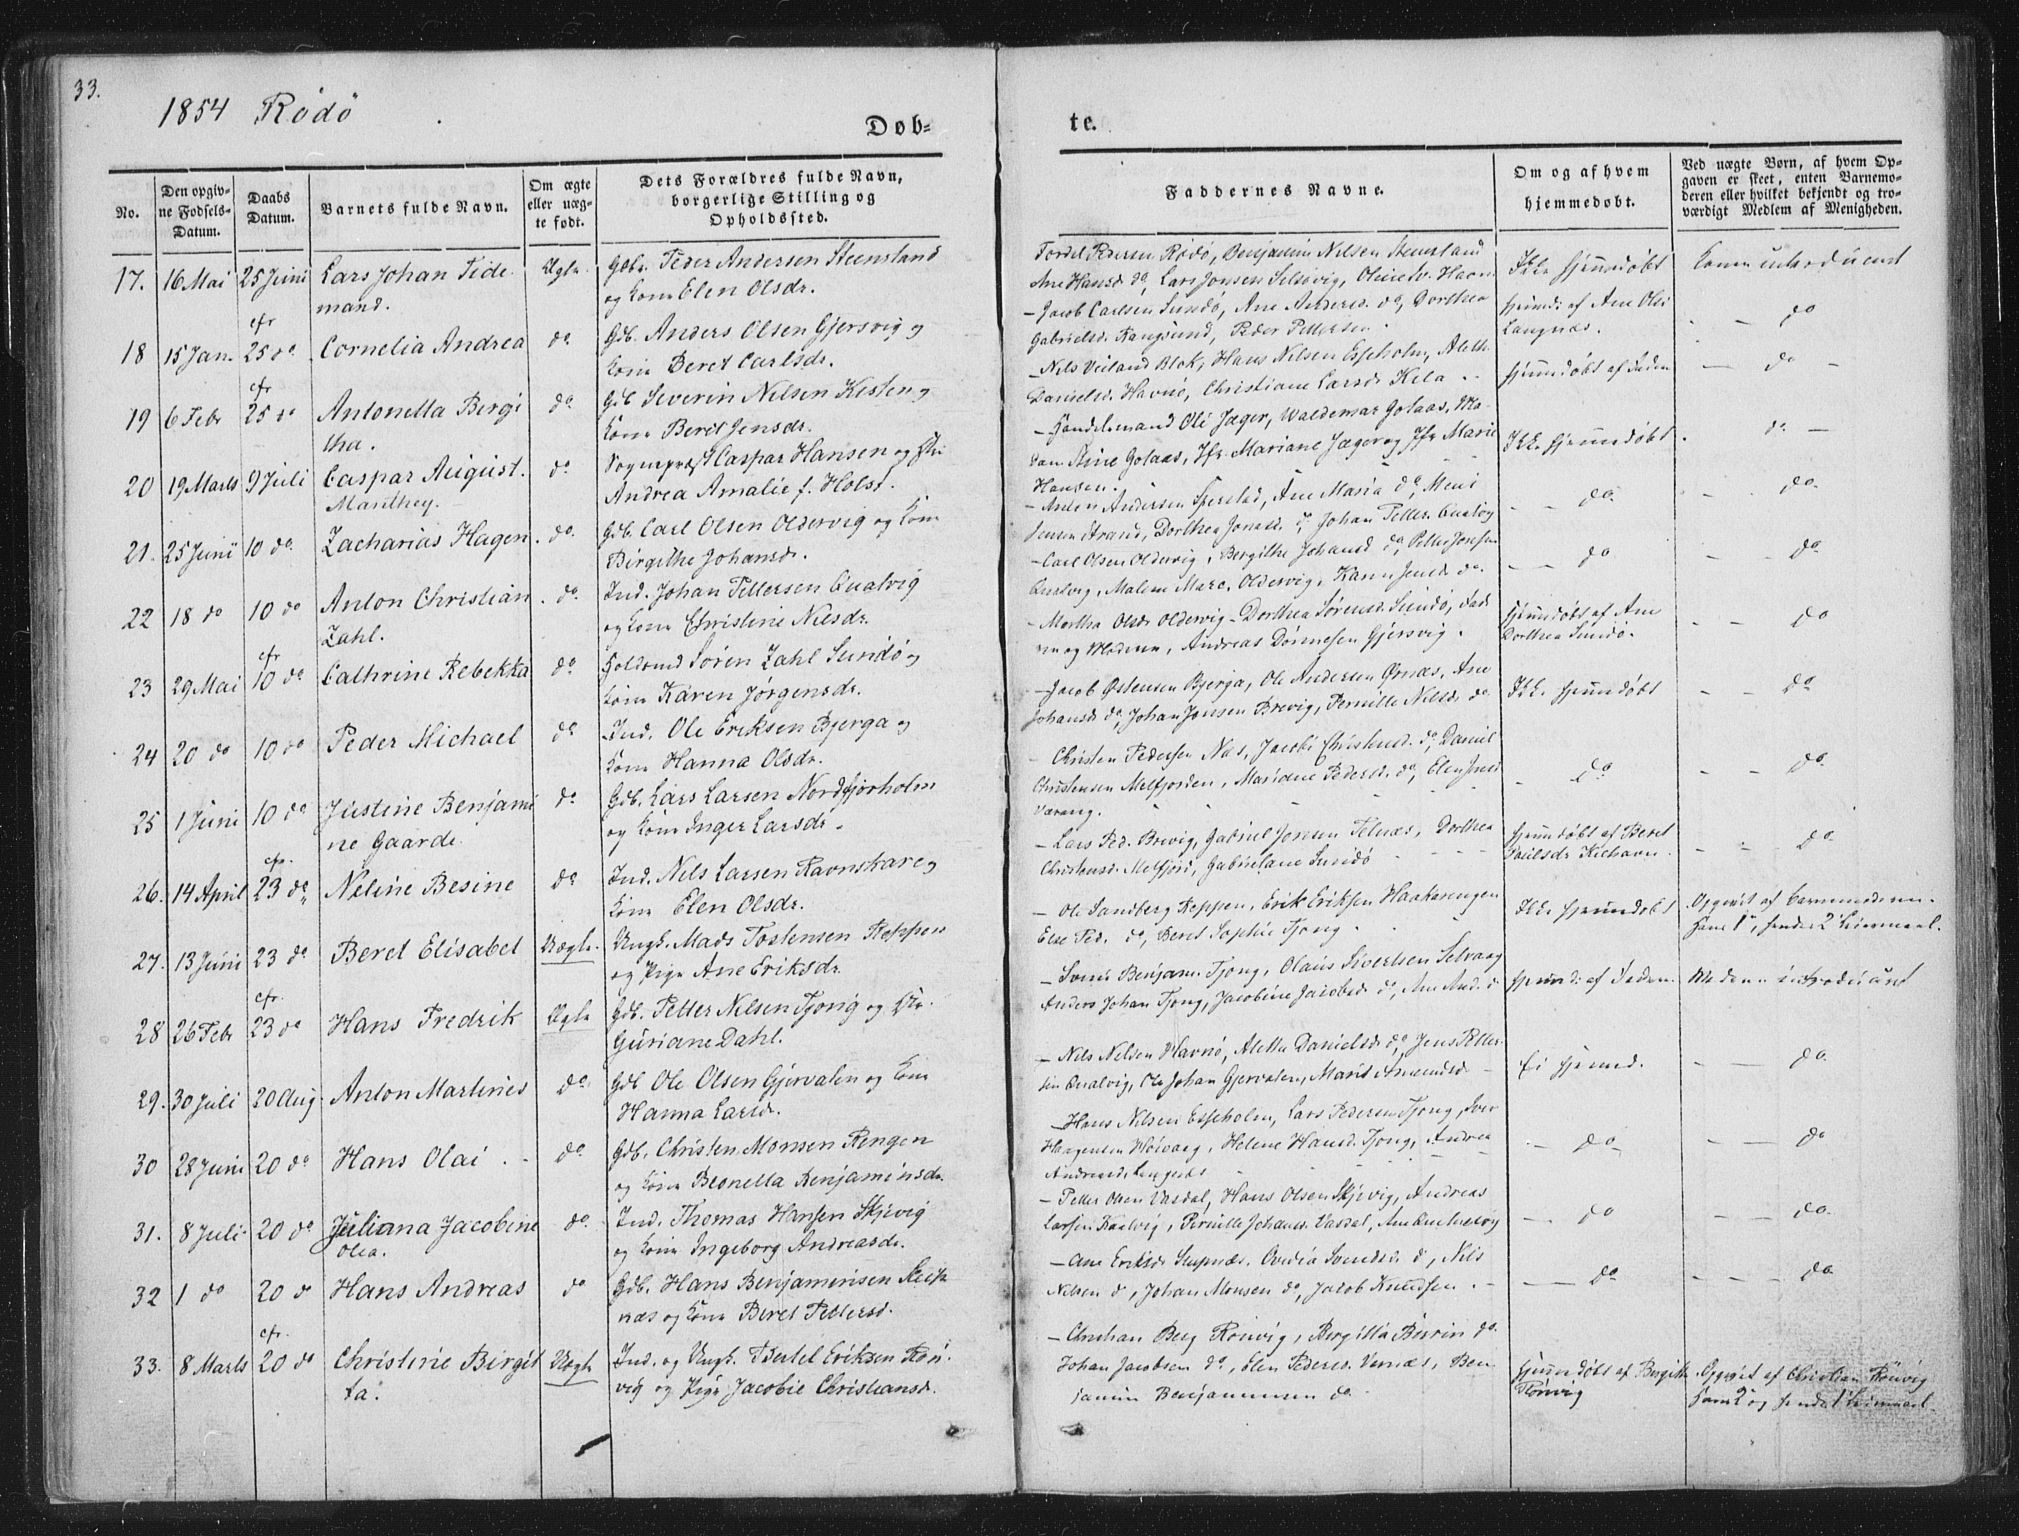 33.
1854 Rödö
Døb=
te.
No.
Den opgiv-
ne Fødsels-
Datum.
Daabs
Datum.
Barnets fulde Navn.
Om ægte
eller uæg-
te født.
Dets Forældres fulde Navn,
borgerlige Stilling og
Opholdssted.
Faddernes Navne.
Om og af hvem
hjemmedøbt.
Ved uægte Børn, af hvem Op-
gaven er skeet, enten Barnemo-
deren eller hvilket bekjendt og tro-
værdigt Medlem af Menigheden.
17. 16 Mai 25 Juni Lars Johan Tide- Ægte Gdbr. Peder Andersen Steensland
mand. og Kone Elen Olsdr.
Peder Pedersen Rødø, Benjamin Nilsen Steensland
Ane Hansd. do, Lars Jonsen Selsövig, Havn
Ikke hjemdöbt Konen introduceret
18 15 Jan. cfr 25 do Cornelia Andrea do Gdb. Anders Olsen Gjersvig og
Kone Beret Carlsdr.
- Jacob Carlsen Sundö, Ane Andersd. do, Dorthea
Gabrielsd. Rangsund, Peder Pettersen.
hjemd: af Ane Ols:
Langnæs. - - do
19 6 Febr cfr 25 do Antonetta Bergi do Gdb Severin Nilsen Kisten og
tha. Kone Beret Jensdr.
- Nils Veiland Blok, Hans Nilsen Esseholm, Aleth
Danielsd. Havnö, Christiane Larsdr Kila
hjemdöbt af Faderen - do -
20 19 Marts 9 Juli Caspar August. do Sognepræst Caspar Hansen og Fru
Manthey. Andrea Amalie f. Holst.
- Handelsmand Ole Jæger, Waldemar Golaas, Ma-
dam Golaas, Jfr. Mariane Jæger og Jfr Marie
Hansen.
Ikke hjemmdöbt. do -
21. 25 Juni 10 do. Zacharias Hagen. do. Gdb. Carl Olsen Oldervig og Kone
Birgithe Johansdr.
- Anders Andersen Sperstad, Ane Maria do, Meni
Jensen Strand, Dorthea Jonasd. do, Johan Petter. Qualvig
- - do - do.
22 18 do 10 do Anton Christian do. Ind. Johan Pettersen Qualvig
Zahl. og Kone Christine Nilsdr.
- Carl Olsen Oldervig, Bergithe Johansd do, Petter Jonsen
Qualvig, Malene Marc. Oldervig, Karen Jensd. do.
- - do - - do.
23 29 Mai cfr 10 do Cathrine Rebekka do Søren Zahl Sundö og
Kone Karen Jörgensdr.
- Martha Olsdr Oldervig - Dorthea Sörensd. Sundö, Fade
ren og Moderen, Andreas Dönnesen Gjersvig.
hjemdöbt af Ane
Dorthea Sundö. - - do
24 20 do 10 do Peder Michael do Ind. Ole Eriksen Bjerga og
Kone Hanna Olsdr.
- Jacob Östensen Bjerga, Ole Andersen Örnæs, Ane
Johansdr do, Johan Jonsen Brevig, Pernille Nilsd. do
Ikke hjemdöbt - - do
25 1 Juni 10 do Justine Benjami do Gdb. Lars Larsen Nordfjorholm
ne Gaarde. og Kone Inger Larsdr.
- Christen Pedersen Næs, Jacobi Christensd. do, Daniel
Christensen Melfjorden, Mariane Pedersd. do, Elen Jensd
Værang.
- do - - do.
26. 14 April cfr. 23 do Neline Besine do Ind. Nels Larsen Ravnskar og
Kone Elen Olsdr.
- Lars Ped. Brevig, Gabriel Jonsen Telnæs, Dorthea
Christensd. Melfjord, Gabrielane Sundö
hjemdöbt af Beret
Paulsdr Kiehavn. - - do
27. 13 Juni 23 do Beret Elisabet Uægte. Ungk. Mads Tostensen Reppen
og Pige Ane Eriksdr.
- Ole Sandberg Reppen, Erik Eriksen Haakarengen
Else Ped. do, Beret Sophie Tjong.
Ikke hjemdöbt Opgivet af Barnemoderen.
Hans 1, hendes 2 Leiermaal.
28 26 Febr cfr. 23 do Hans Fredrik Ægte Gdb. Petter Nilsen Tjong og K
Guriane Dahl.
- Svend Benjam. Tjong, Olaus Sivertsen Selvaag
Anders Johan Tjong, Jacobine Jacobsd do, Ane And. do
hjemd: af Faderen. Moderen introduceret
29. 30 Juli 20 Aug. Anton Martines do. Gdb Ole Olsen Gjervalen og Kone
Hanna Larsdr.
- Nils Nilsen Havnö, Aletta Danielsdr do, Jens Petter-
sen Qualvig, Ole Johan Gjervalen, Marit Amundsd. -
Ei hjemmd. - do
30 28 Juni 20 do Hans Olai. do. Gdb. Christen Monsen Rengen
og Kone Beonella Benjaminsdr.
- Hans Nilsen Esseholm, Lars Pedersen Tjong, Iver
Haagensen Høivaag, Helene Hansd. Tjong, Andrea
Andreasd.
- do - - do
31. 8 Juli 20 do Juliana Jacobine do. Ind. Thomas Hansen Skjevig
Olea. og Kone Ingeborg Andreasdr.
- Petter Olsen Vasdal, Hans Olsen Skjevig, Andreas
Larsen Kalvig, Pernille Johansd. Vasdal,
- do - - do.
32 1 do 20 do Hans Andreas do Gdb. Hans Benjaminsen Steps
næs og Kone Beret Pettersd.
- Ane Eriksdr Stepnæs. Ovidia Svendsd. do, Nils
Nilsen do, Johan Monsen do, Jakob Knudsen. -
- do - - do
33. 8 Marts cfr. 20 do Christine Birgit Uægte Ind. og Ungk. Bertel Eriksen Rön-
ta. vig og Pige Jacobie Christiansd.
- Christian Berg Rönvig, Bergitta do.
Johan Jacobsen do, Elen Pedersd. Værnæs, Ben-
jamin Benjaminsen do
hjemdöbt af Bergith
Rönvig
Opgivet af Christian Rönvig
Hans 2 og hendes 1 Leiermaal.